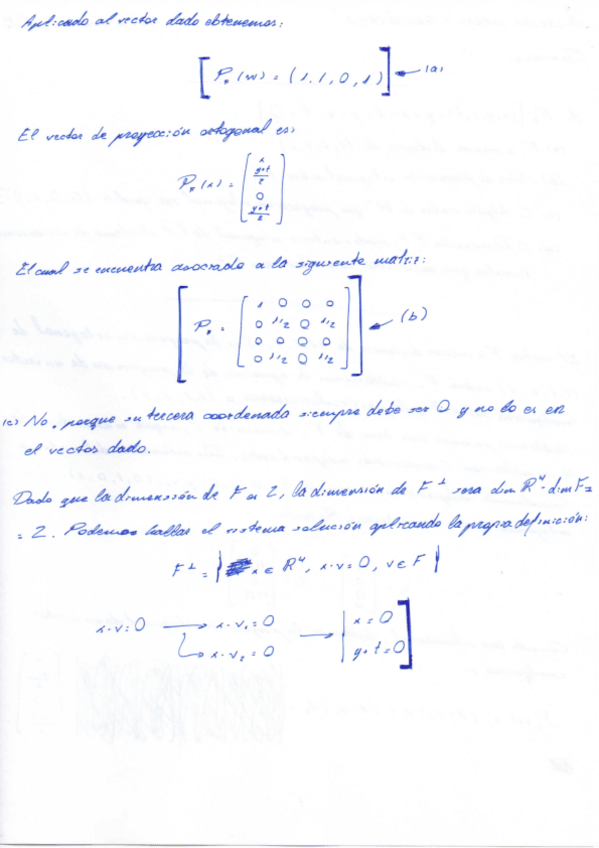 Aplicado al vector dado obtenemos:
[ P_F (w) = (1, 1, 0, 1) ] ← (a)
El vector de proyección ortogonal es:
P_F (x) = [ x
y+t / 2
0
y+t / 2 ]
El cual se encuentra asociado a la siguiente matriz:
[ P_F = [ 1 0 0 0
0 1/2 0 1/2
0 0 0 0
0 1/2 0 1/2 ] ] ← (b)
(c) No, porque su tercera coordenada siempre debe ser 0 y no lo es en
el vector dado.
Dado que la dimensión de F es 2, la dimensión de F⊥ sera dim R⁴ - dim F =
= 2. Podemos hallar el sistema solución aplicando la propia definición:
F⊥ = { x ∈ R⁴, x·v = 0, v ∈ F }
x·v = 0 → x·v₁ = 0 → | x = 0 ]
↳ x·v₂ = 0 | y+t = 0 ]